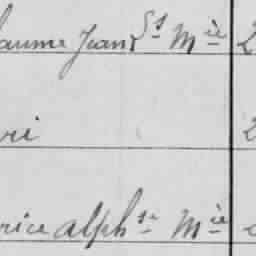 aume Jean Ss Mie 2
ri 2
rice alphse Mie